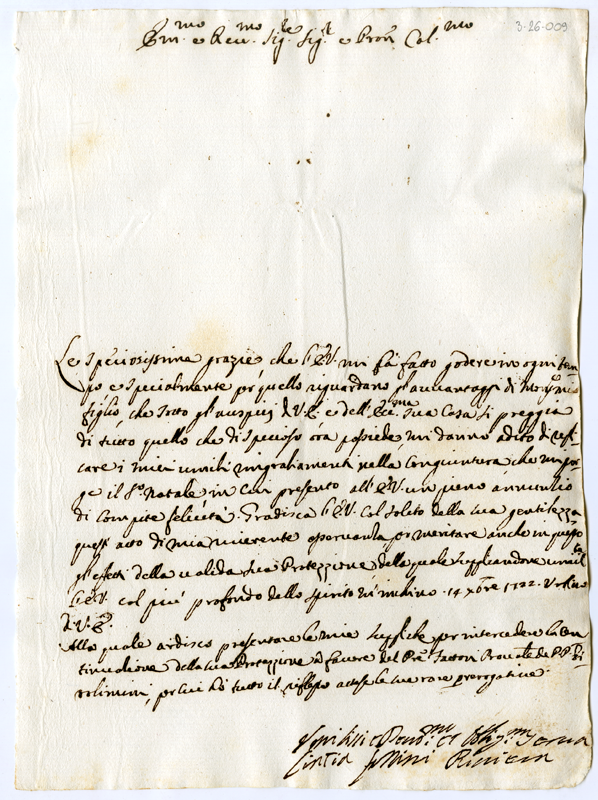 3-26-009
Em.mo e Rev.mo Sig.re Sig.r e Pron Col.mo
Le speciosissime grazie che l'E.V. mi fà fatto godere in ogni tem
po e specialmente per quello riguardano gl'auvantaggi di mio
figlio, che sotto gl'auspicij di V.E. e dell'Ecc.ma sua Casa si preggia
di tutto quello che di specioso ora possiede, mi danno adito di
care i miei umili ringratiamenti nella congiuntura che mi por
ge il S.o Natale, in cui presento all'E.V. un pieno annunzio
di compite felicità. Gradisca l'E.V. col solito della sua gentilezza
quest'atto di mia riverente osservanza per meritare anche in questo
gl'effetti della valida sua Protezzione della quale supplicandone
l'E.V. col più profondo dello spirito m'inchino. 14 Xbre 1722. Urbino
di V.E.
Alla quale ardisco presentare le mie suppliche per intercedere la con
tinuatione della sua Protezzione à favore del Pre. Fattori Pro.nale de P.P.
rolimini, per cui hò tutto il riflesso attese le sue rare prerogative.
Umiliss. e Devot.ma et Obblig.ma Serva
Cintia Riviera